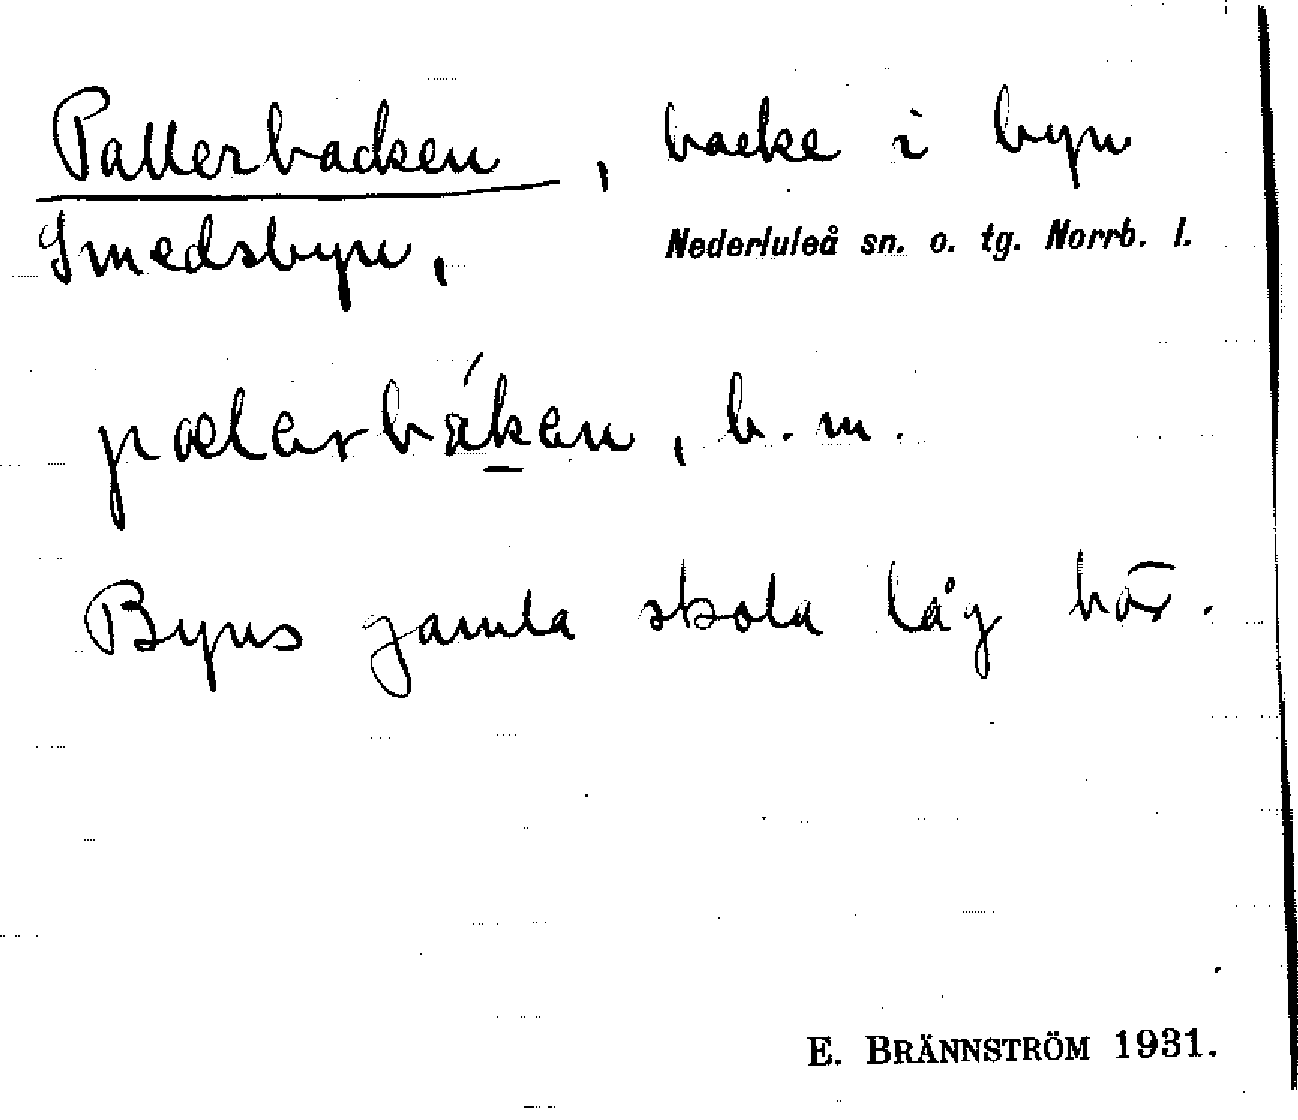 Pallerbacken, backe i byn
Smedsbyn, Nederluleå sn. o. tg. Norrb. l.
pælerbáken, b. m.
Byns gamla skola låg här.
E. BRÄNNSTRÖM 1931.